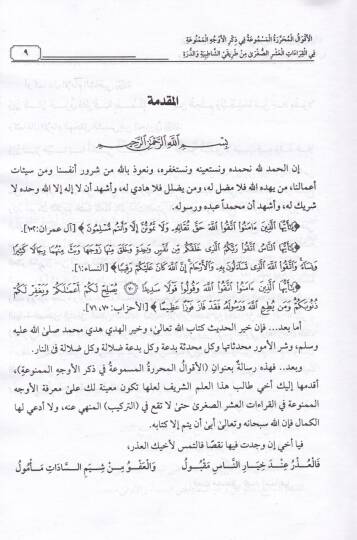 الأقوال المحررة المسموعة في ذكر الأوجه الممنوعة
في القراءات العشر الصغرى من طريقي الشاطبية والدرة
٩
المقدمة
بسم الله الرحمن الرحيم
إن الحمد لله نحمده ونستعينه ونستغفره، ونعوذ بالله من شرور أنفسنا ومن سيئات
أعمالنا، من يهده الله فلا مضل له، ومن يضلل فلا هادي له، وأشهد أن لا إله إلا الله وحده لا
شريك له، وأشهد أن محمداً عبده ورسوله.
﴿يَٰٓأَيُّهَا ٱلَّذِينَ ءَامَنُوا۟ ٱتَّقُوا۟ ٱللَّهَ حَقَّ تُقَاتِهِۦ وَلَا تَمُوتُنَّ إِلَّا وَأَنتُم مُّسْلِمُونَ﴾ [آل عمران:
﴿يَٰٓأَيُّهَا ٱلنَّاسُ ٱتَّقُوا۟ رَبَّكُمُ ٱلَّذِى خَلَقَكُم مِّن نَّفْسٍ وَٰحِدَةٍ وَخَلَقَ مِنْهَا زَوْجَهَا وَبَثَّ مِنْهُمَا رِجَالًا كَثِيرًا
وَنِسَآءً وَٱتَّقُوا۟ ٱللَّهَ ٱلَّذِى تَسَآءَلُونَ بِهِۦ وَٱلْأَرْحَامَ إِنَّ ٱللَّهَ كَانَ عَلَيْكُمْ رَقِيبًا﴾ [النساء:١].
﴿يَٰٓأَيُّهَا ٱلَّذِينَ ءَامَنُوا۟ ٱتَّقُوا۟ ٱللَّهَ وَقُولُوا۟ قَوْلًا سَدِيدًا ۝٧٠ يُصْلِحْ لَكُمْ أَعْمَٰلَكُمْ وَيَغْفِرْ لَكُمْ
ذُنُوبَكُمْ وَمَن يُطِعِ ٱللَّهَ وَرَسُولَهُۥ فَقَدْ فَازَ فَوْزًا عَظِيمًا﴾ [الأحزاب:٧٠، ٧١].
أما بعد... فإن خير الحديث كتاب الله تعالى، وخير الهدي هدي محمد صلى الله عليه
وسلم، وشر الأمور محدثاتها وكل محدثة بدعة وكل بدعة ضلالة وكل ضلالة في النار.
وبعد.. فهذه رسالةٌ بعنوانِ (الأقوالُ المحررةُ المسموعةُ في ذكر الأوجهِ الممنوعةِ)،
أقدمها إليك أخي طالب هذا العلم الشريف لعلها تكون معينة لك على معرفة الأوجه
الممنوعة في القراءات العشر الصغرى حتى لا تقع في (التركيب) المنهي عنه، ولا أدعي لها
الكمال فإن الله سبحانه وتعالى أبى أن يتم إلا كتابه.
فيا أخي إن وجدت فيها نقصا فالتمس لأخيك العذر،
فَالْعُذْرُ عِنْدَ خِيَارِ النَّاسِ مَقْبُولُ وَالْعَفْوُ مِنْ شِيَمِ السَّادَاتِ مَأْمُولُ